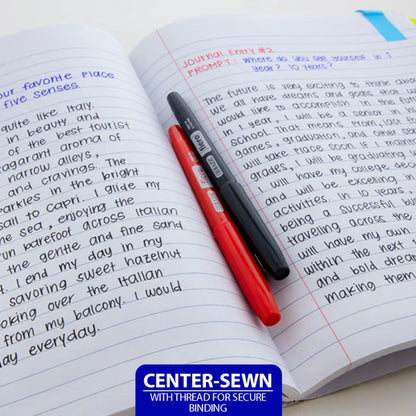 our favorite place
five senses.
quite like Italy.
in beauty and
of the best tourist
fragrant aroma of
narrow alleys,
and cravings. The
sparkles in the bright
sail to Capri. I glide my
the sea, enjoying the
run barefoot across Italian
the gentle and fine sand
I end my day in my
savoring sweet hazelnut
looking over the Italian
from my balcony. I would
day everyday.
Journal Entry #2
PROMPT: Where do you see yourself in 1
year? 10 years?
The future is very exciting to think about
we all have dreams and
would like to accomplish in the
in 1 year, I will be a senior in
school. That means prom,
games, graduation, and other
will take place soon if I maintain
grades, I will be graduating
I will have my college
and will be excelling
activities. In 10 years
being a successful
traveling across the
will have my own
within the next
and bold dreams
making them
CENTER-SEWN
WITH THREAD FOR SECURE
BINDING